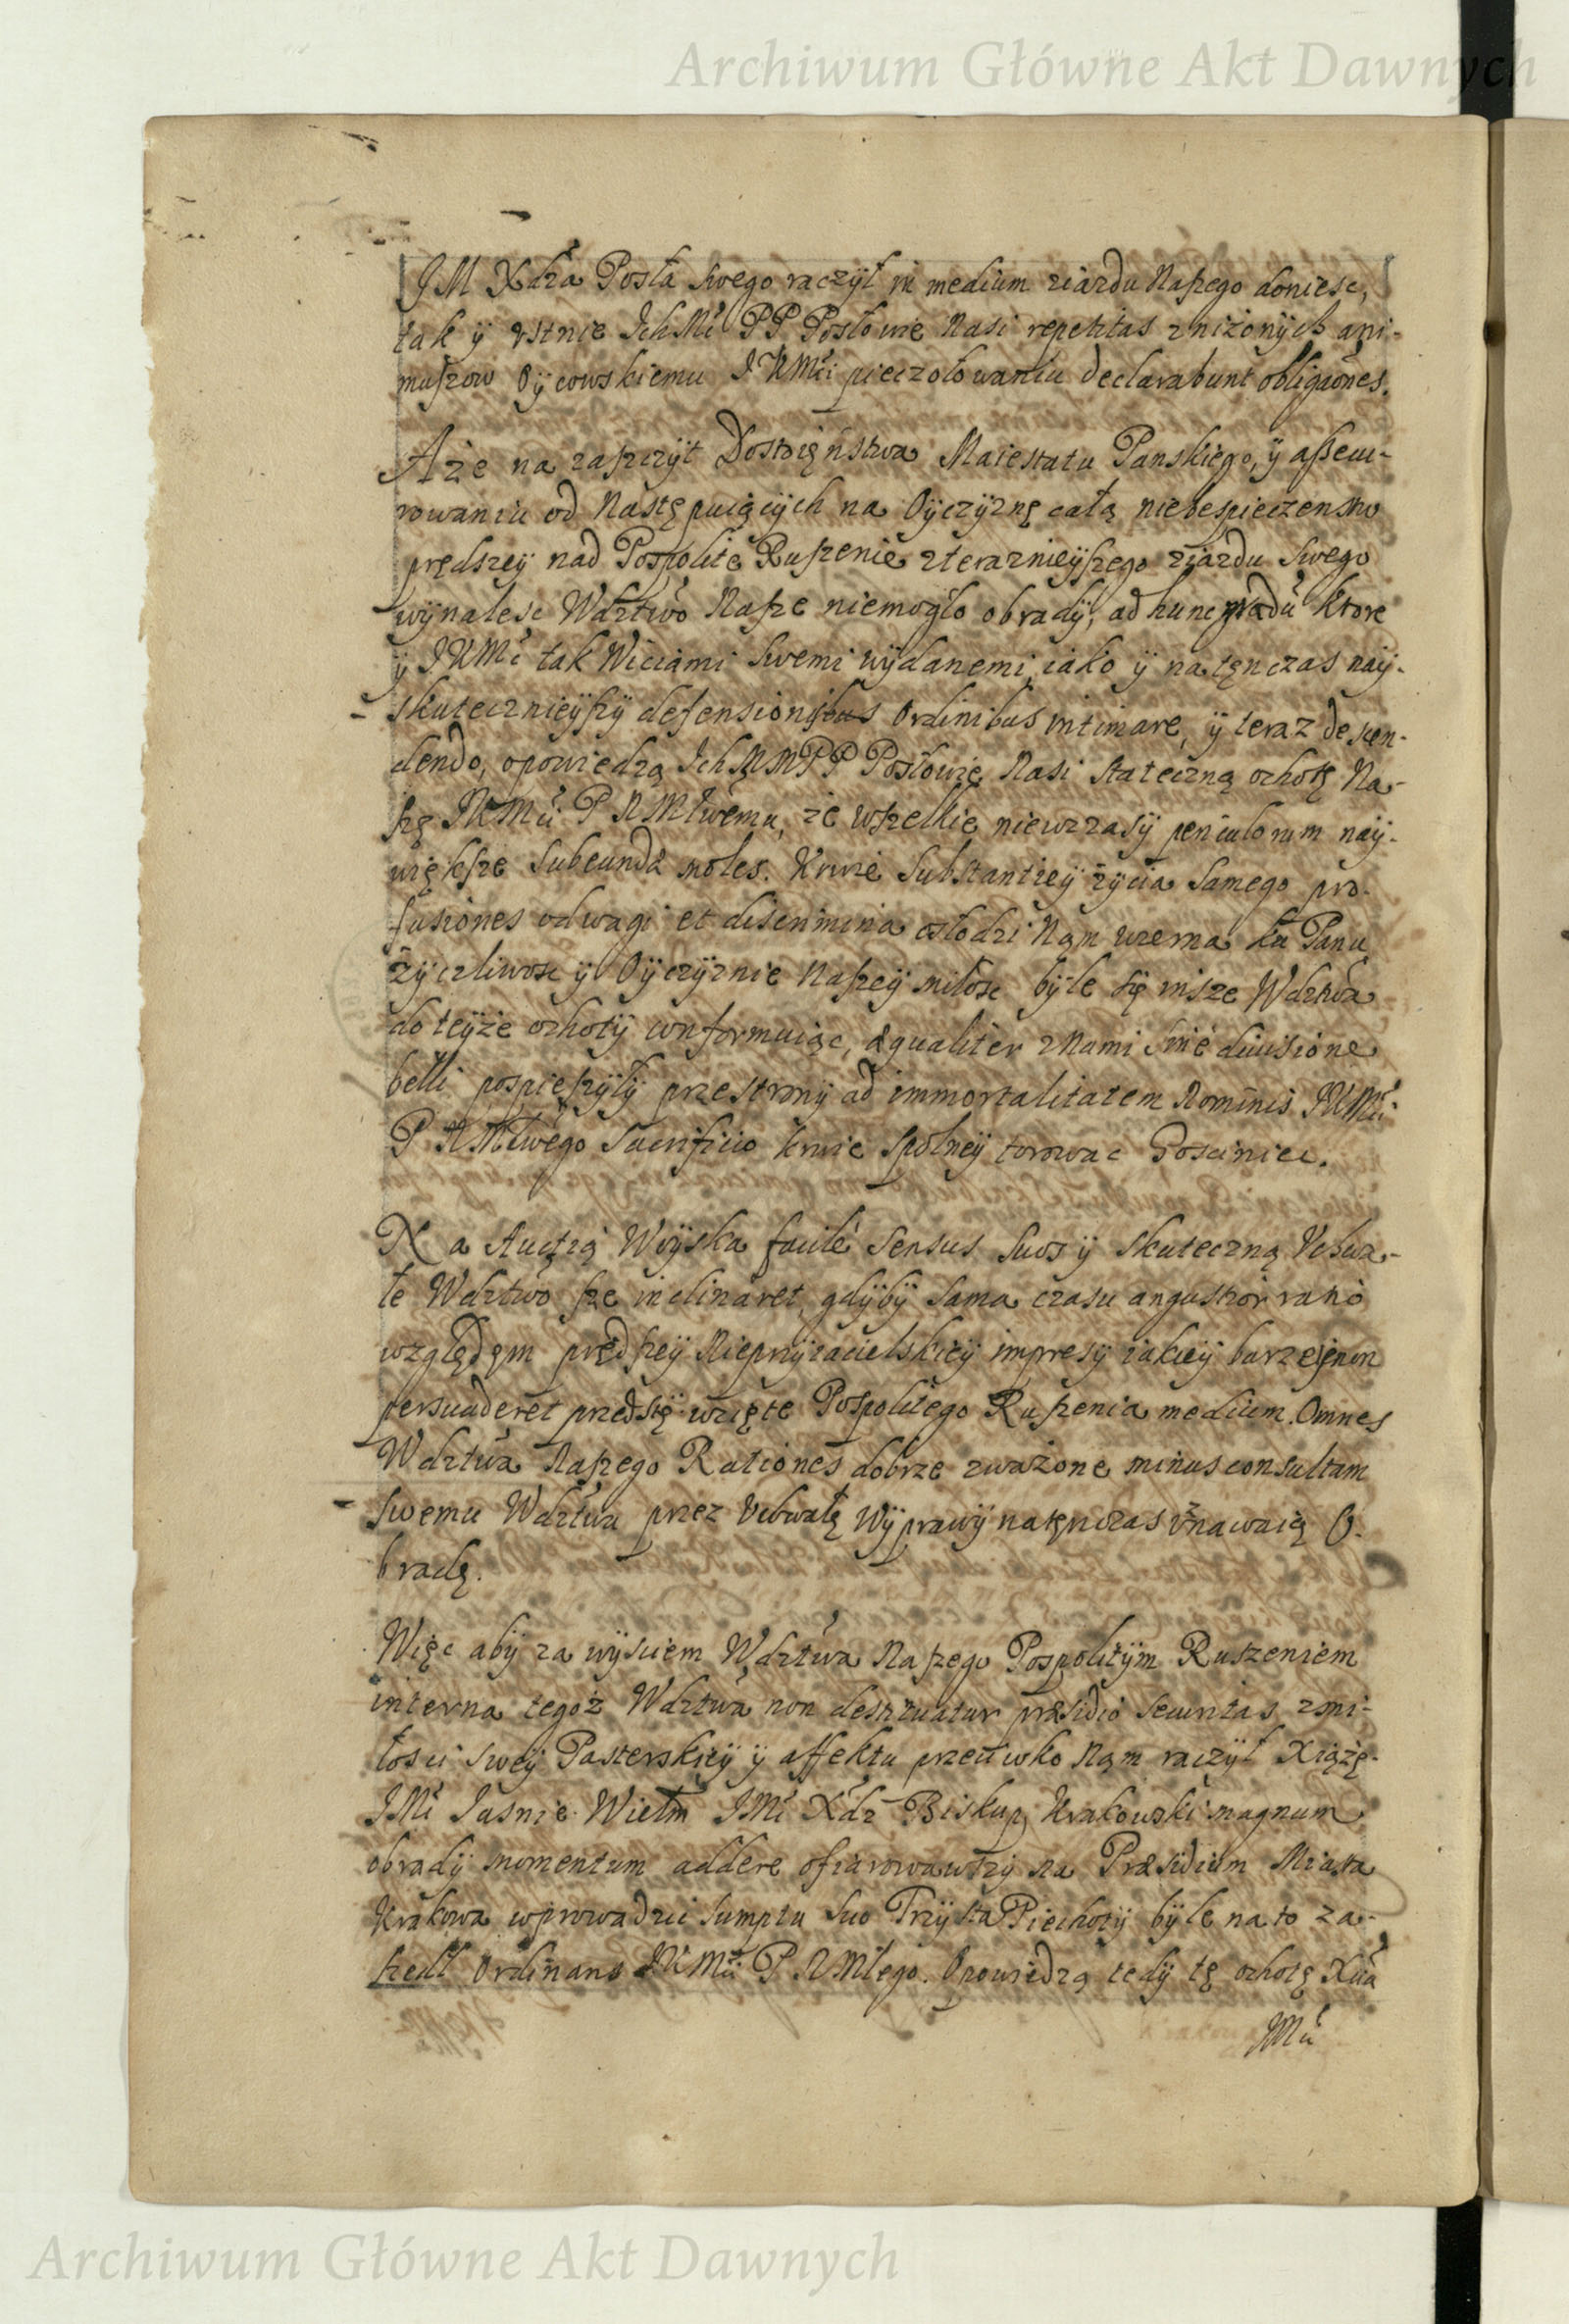 Archiwum Główne Akt Dawnych
JM Xdza Posła swego raczÿł in medium ziazdu Naszego doniesc,
tak ÿ vstnie Ich Mć PP Posłowie Nasi repetitas znizonÿch ani-
muszow Oÿcowskiemu JKMci pieczołowaniu declarabunt obligaões.
A że na zaszczÿt Dostoięństwa Maiestatu Panskiego, ÿ assecu-
rowaniu od Następuiącÿch na Oÿczÿznę całą niebespieczenstw
prędszeÿ nad Pospolite Ruszenie zteraznieÿszego ziazdu swego
wÿnalesc Wdztwo Nasze niemogło obradÿ, ad hunc gradū ktore
ÿ JKMć tak Wiciami swemi wÿdanemi, iako ÿ natęnczas naÿ-
skutecznieÿszÿ defensionis Ordinibus intimare, ÿ teraz descen-
dendo, opowiedzą Ich PP Posłowie Nasi stateczną ochotę Na-
szę JKMci P N Młwemu, że wszelkie niewzrasÿ periculorum naÿ-
większe subeunda moles. Krwie Substantieÿ żÿcia samego pro-
fusiones odwagi et discrimina osłodzi Nąm wierna ku Panu
żÿczliwosc ÿ Oÿczÿznie Naszeÿ miłosc bÿle się insze Wdztwa
do teÿże ochotÿ conformuiąc, æqualiter z Nami sine diuisione
belli pospieszÿłÿ przestronÿ ad immortalitatem Nominis JKMci
P N Młwego Sacrificio krwie spolneÿ torowac Gosciniec.
Na Auctią Woÿska facile sensus suos ÿ skuteczną Vchwa-
łe Wdztwo sze inclinaret, gdÿbÿ sama czasu angustior ratio
względęm prędszeÿ Nieprzÿiacielskieÿ impresÿ iakieÿ barzeÿ non
persuaderet przedsię wzięte Pospolitego Ruszenia medium. Omnes
Wdztwa Naszego Rationes dobrze zważone minus consultam
swemu Wdztwu przez Vchwałę Wÿprawÿ natęnczas vznawaią O-
bradę.
Więc abÿ za wÿsciem Wdztwa Naszego Pospolitÿm Ruszeniem
interna tegoż Wdztwa non destituatur præsidio securitas z mi-
łosci sweÿ Pasterskieÿ ÿ affektu przeciwko Nąm raczÿł Xiążę
JMć Jasnie Wielm JMć Xdz Biskup Krakowski magnum
obradÿ momentum addere ofiarowawszÿ na Præsidium Miasta
Krakowa wprowadzic sumptu suo Trzÿsta Piechotÿ bÿle na to za-
szedł Ordinans JKMci P N Młego. Opowiedzą tedÿ tę ochotę Xcia
JMci
Archiwum Główne Akt Dawnych